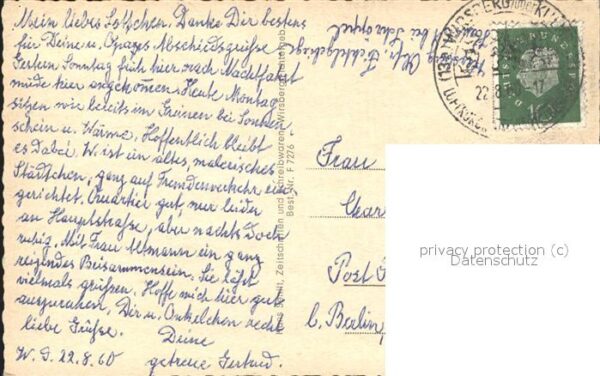 Mein liebes Lottchen. Danke Dir bestens
für Deine u. Opages Abschiedsgrüße
Gestern Sonntag früh hier nach Nachtfahrt
müde hier angekommen. Heute Montag
sitzen wir bereits im Grünen bei Sonnen
schein u. Wärme. Hoffentlich bleibt
es dabei. W. ist ein altes, malerisches
Städtchen, ganz auf Fremdenverkehr ein
gerichtet. Quartier gut, nur leider
an Hauptstraße, aber nachts doch
ruhig. Mit Frau Altmann ein ganz
reizendes Beisammensein. Sie läßt
vielmals grüßen. Hoffe mich hier gut
auszuruhen. Dir u. Onkelchen recht
liebe Grüße. Deine
W. d. 22.8.60 getreue Gertrud.
bei Schröppel
Zeitschriften und Schreibwaren, Wirsberg
Best. Nr. F 7276
WIRSBERG
22.8.
Frau
Char
Post
b. Berlin,
privacy protection (c)
Datenschutz